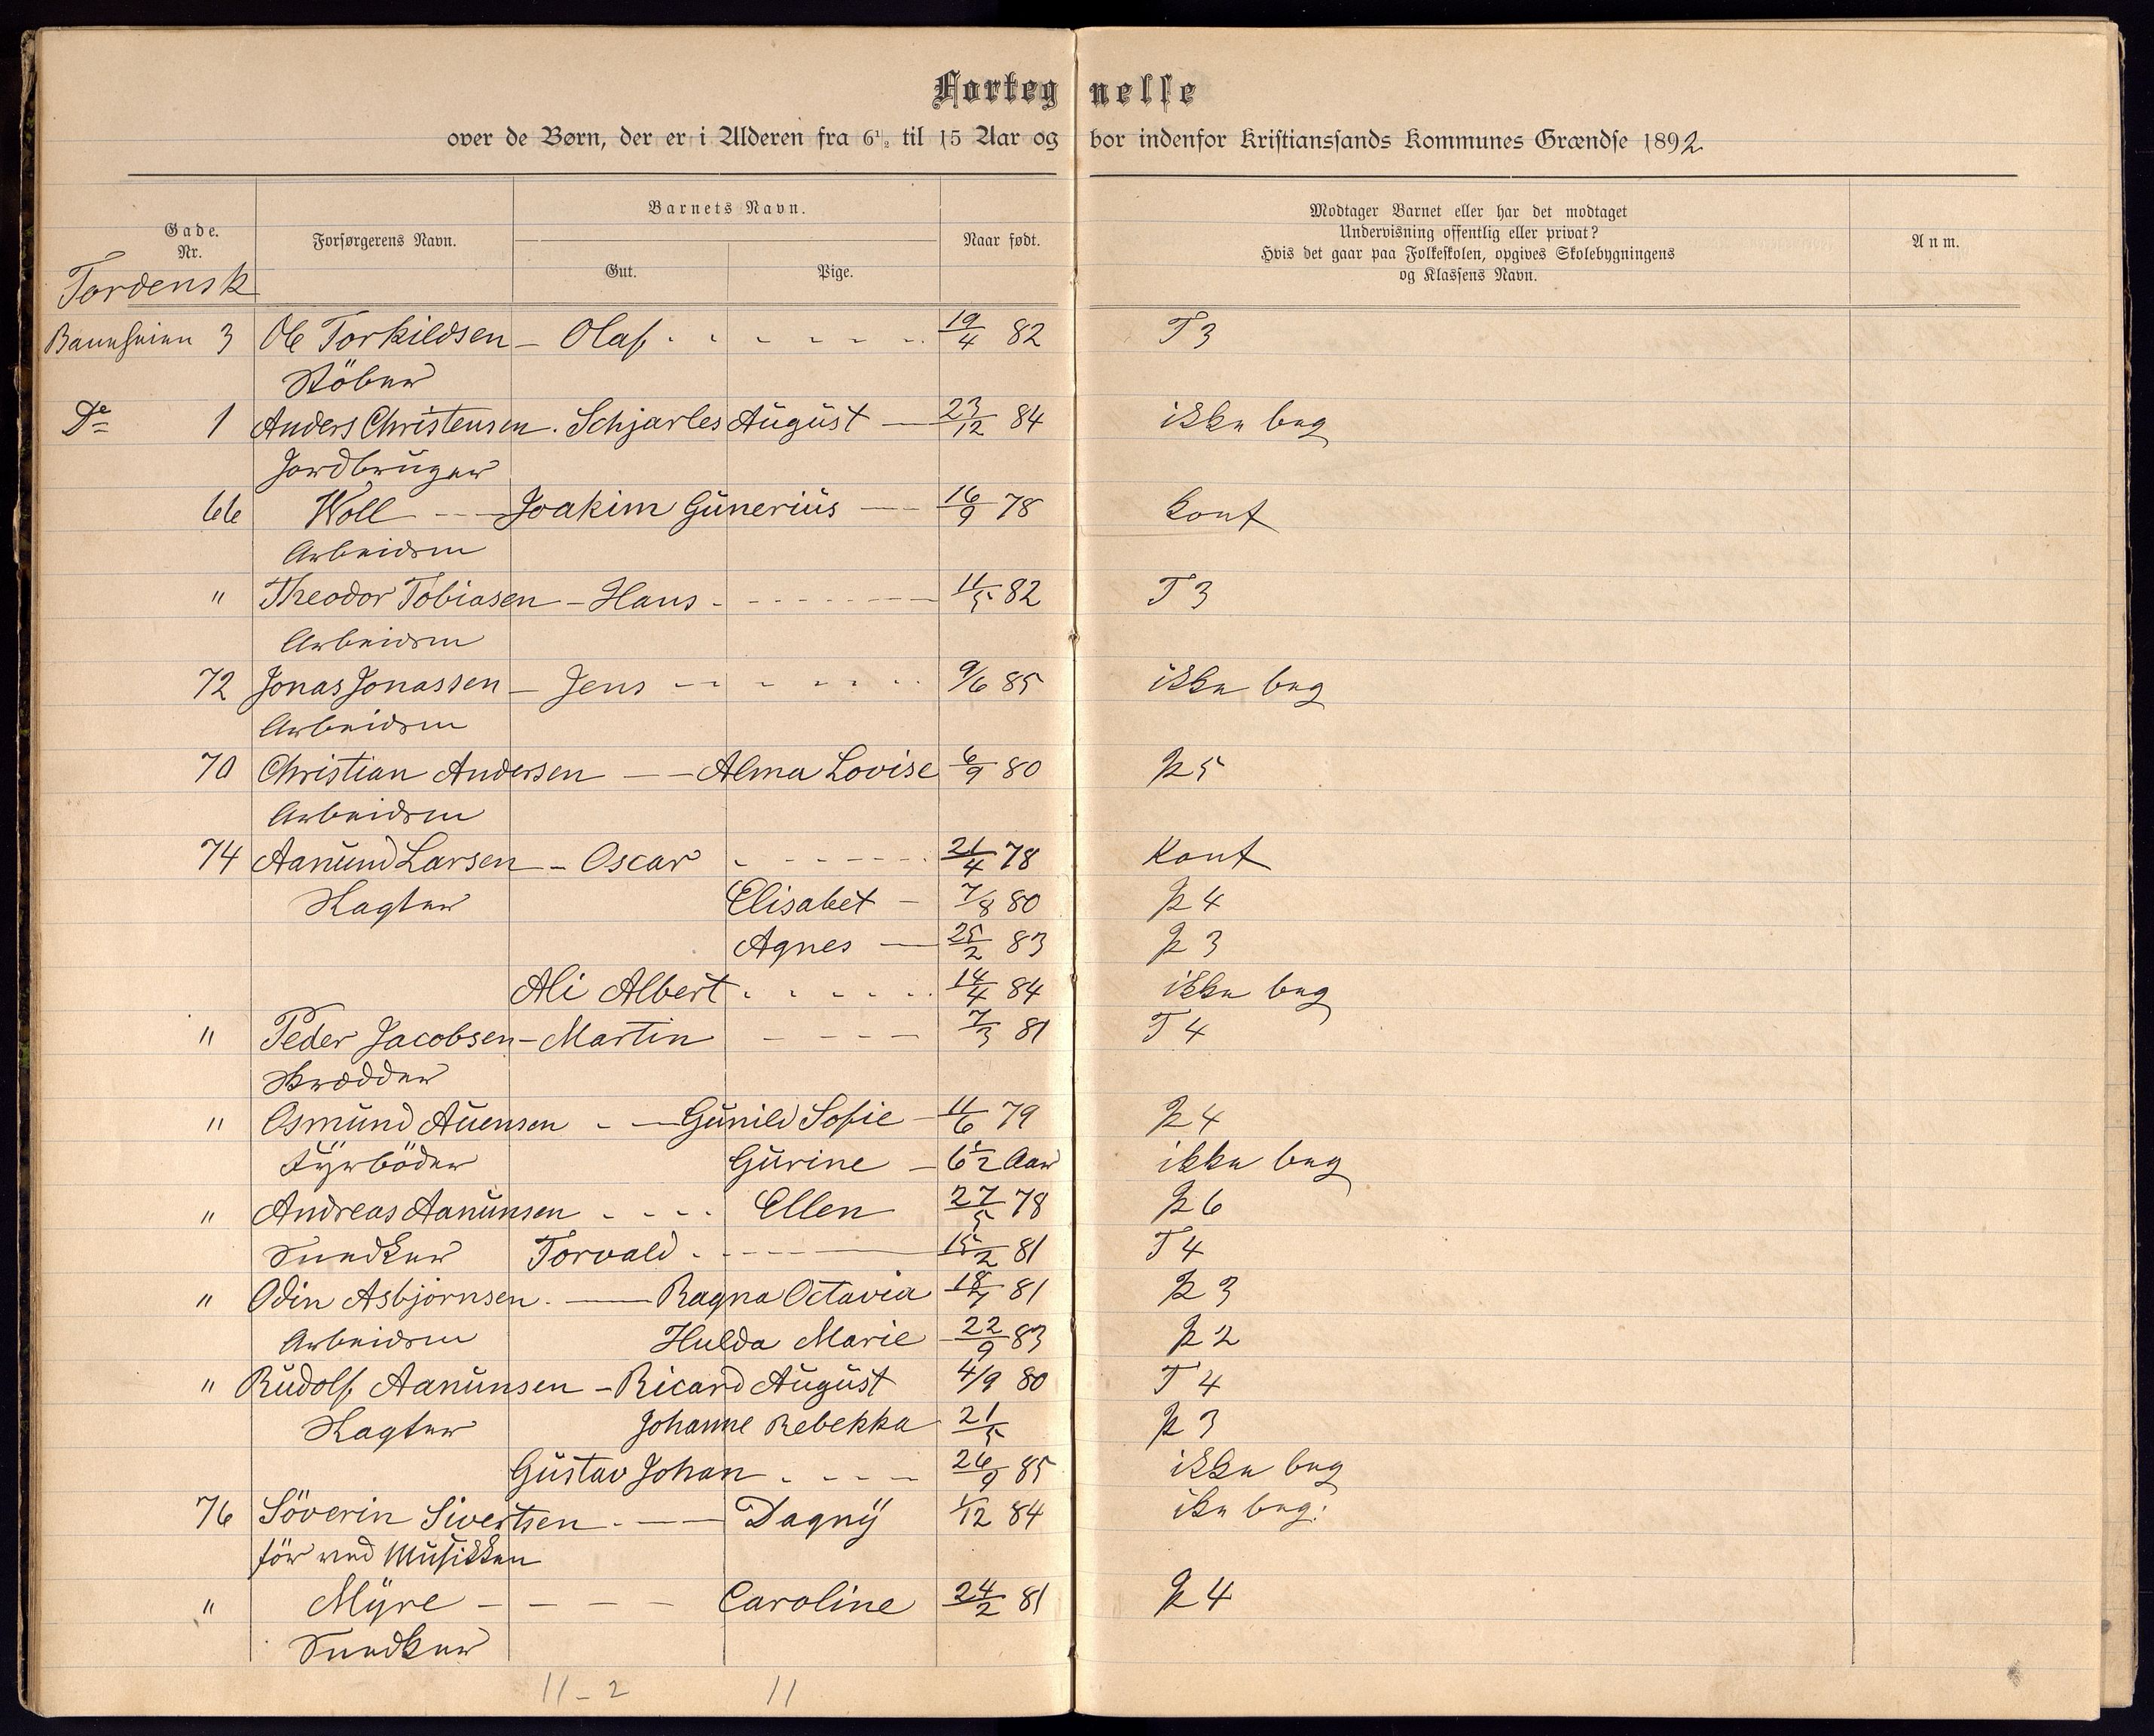 Fortegnelse
over de Børn, der er i Alderen fra 6½ til 15 Aar og bor indenfor Kristianssands Kommunes Grændse 1892
Gade. Nr.
Forsørgerens Navn.
Barnets Navn.
Gut.
Pige.
Naar født.
Modtager Barnet eller har det modtaget
Undervisning offentlig eller privat?
Hvis det gaar paa Folkeskolen, opgives Skolebygningens
og Klassens Navn.
Anm.
Tordensk
Baneheien 3 Ole Torkildsen - Olaf 19/4 82 T 3
Støber
Do 1 Anders Christensen. Schjarles August 23/12 84 ikke beg
Jordbruger
66 Woll - Joakim Gunerius 16/9 78 Konf
Arbeidsm
" Theodor Tobiasen - Hans 11/5 82 T 3
Arbeidsm
72 Jonas Jonassen - Jens 9/6 85 ikke beg
Arbeidsm
70 Christian Andersen - Alma Lovise 6/9 80 P 5
Arbeidsm
74 Aanund Larsen - Oscar 21/4 78 Konf
Slagter Elisabet - 7/8 80 P 4
Agnes - 25/2 83 P 3
Ali Albert 14/4 84 ikke beg
" Peder Jacobsen - Martin 7/3 81 T 4
Skrædder
" Osmund Auensen - Gunild Sofie - 11/6 79 P 4
Fyrbøder Gurine - 6½ Aar ikke beg
" Andreas Aanunsen Ellen 27/5 78 P 6
Snedker Torvald 15/2 81 T 4
" Odin Asbjørnsen. - Ragna Octavia 18/7 81 P 3
Arbeidsm Hulda Marie 22/9 83 P 2
" Rudolf Aanunsen - Ricard August 4/9 80 T 4
Slagter Johanne Rebekka 21/5 P 3
Gustav Johan 26/9 85 ikke beg
76 Söverin Sivertsen - Dagny 1/12 84 ike beg:
før ved Musikken
" Myre - Caroline 24/2 81 P 4
Snedker
11 - 2 11